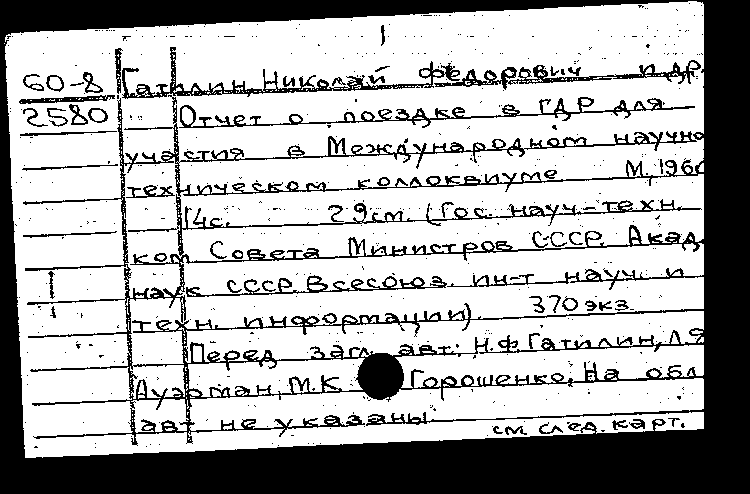 60-8 Гатилин, Николай Федорович и др.
2580 Отчет о поездке в ГДР для
участия в Международном научно
техническом коллоквиуме М, 196
14с. 29см. (Гос. науч.-техн.
ком Совета Министров СССР. Акад.
наук СССР. Всесоюз. ин-т науч. и
техн. информации). 370 экз
Перед загл. авт.: Н.Ф Гатилин, Л.Я
Ауэрман, М.К Горошенко; На обл
авт не указаны.
см. след. карт.